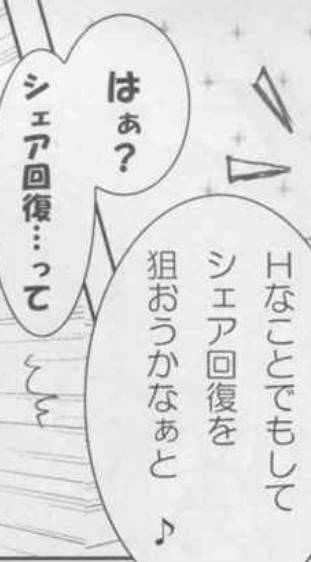 Hなことでもして
シェア回復を
狙おうかなぁと♪
はぁ？
シェア回復…って